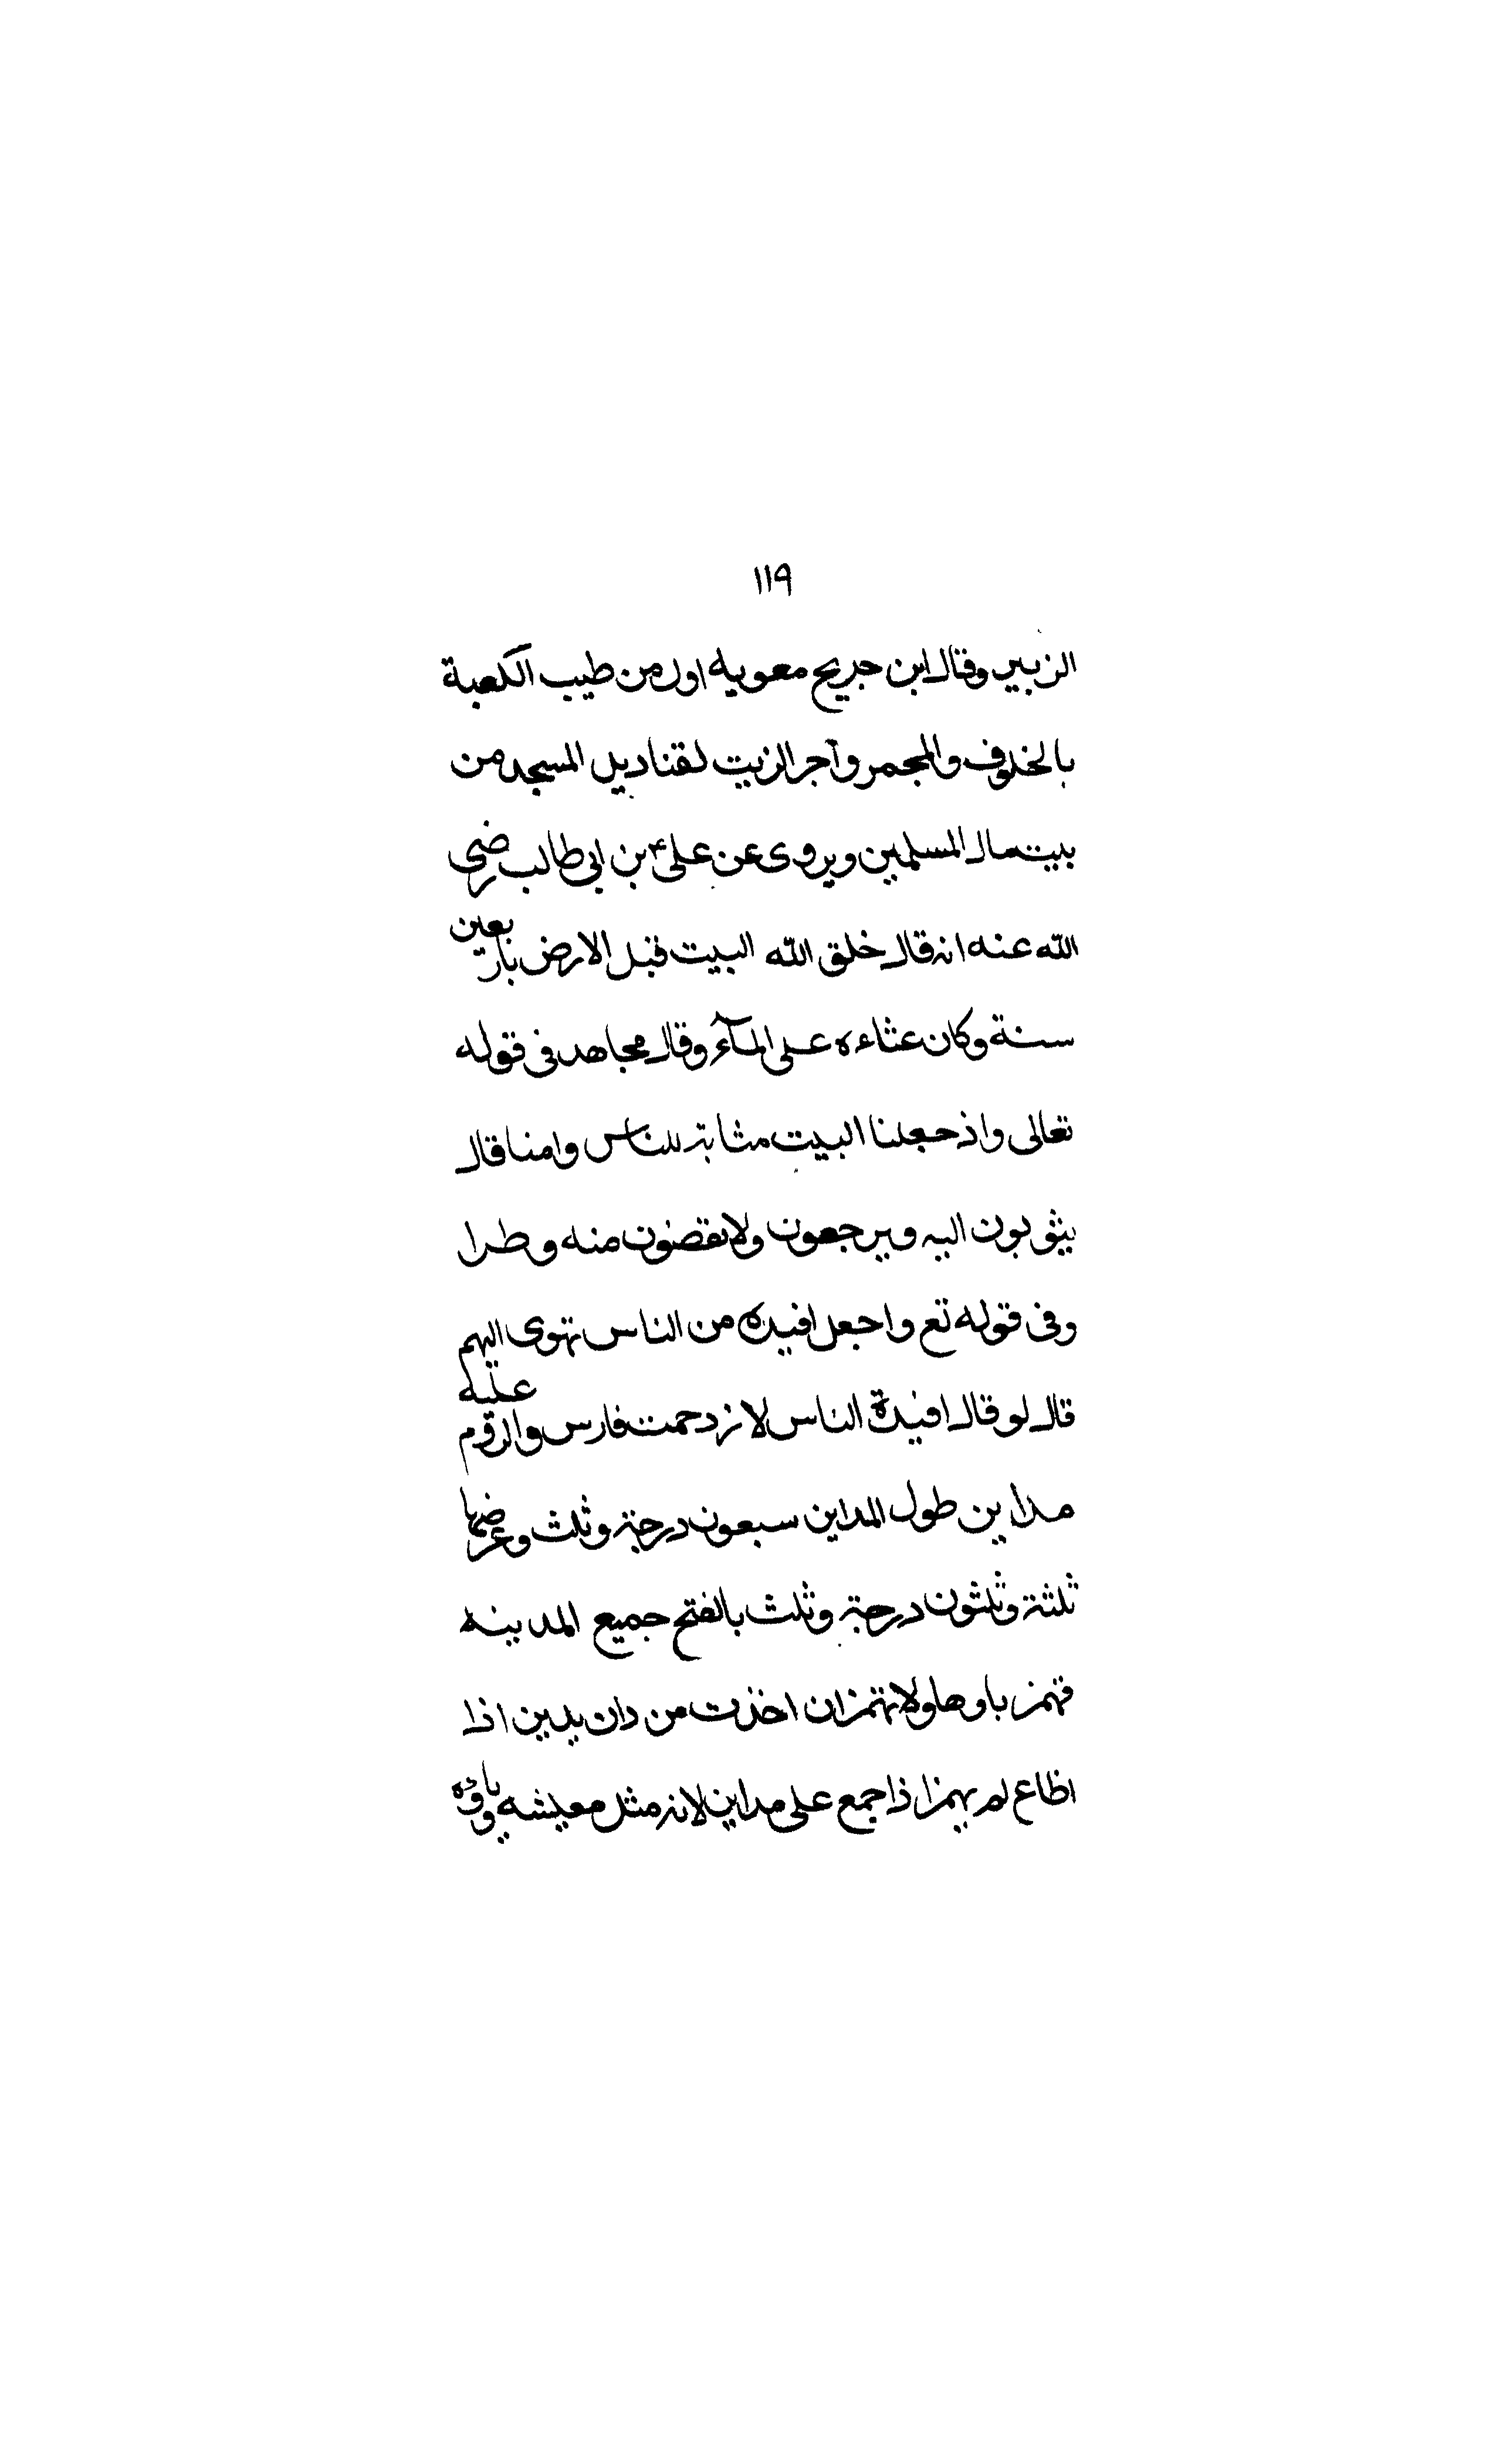 ١١٩
الزبير وقال ابن جريح معويه اول من طيب الكعبة
بالخلوف والمجمر وآجر الزيت لقناديل المسجد من
بيت مال المسلمين ويروى عن على ع بن ابى طالب رضى
الله عنه انه قال خلق الله البيت قبل الارض باربعين
سنة وكان عثاءه على المآء وقال مجاهد فى قوله
تعالى واذ جعلنا البيت مثابة للناس وامنا قال
يثوبون اليه ويرجعون ولا يقضون منه وطرا
وفى قوله تع واجعل افيده من الناس تهوى اليهم
قال لو قال افيدة الناس لازدحمت فارس والروم عليه
مداين طول المداين سبعون درجة وثلث وعرضها
ثلثة وثلثون درجة وثلث بالفتح جميع المدينه
فهمز ياوها ولا تهمزان اخذت من دان يدين اذا
اطاع لم يهمز اذا جمع على مداين لانه مثل معيشه وياؤه